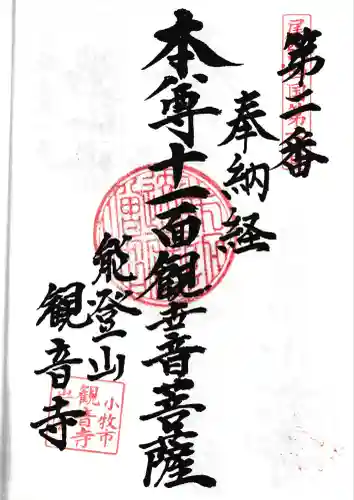 第二番
奉納経
本尊十一面観世音菩薩
能登山
観音寺
小牧市
観音寺